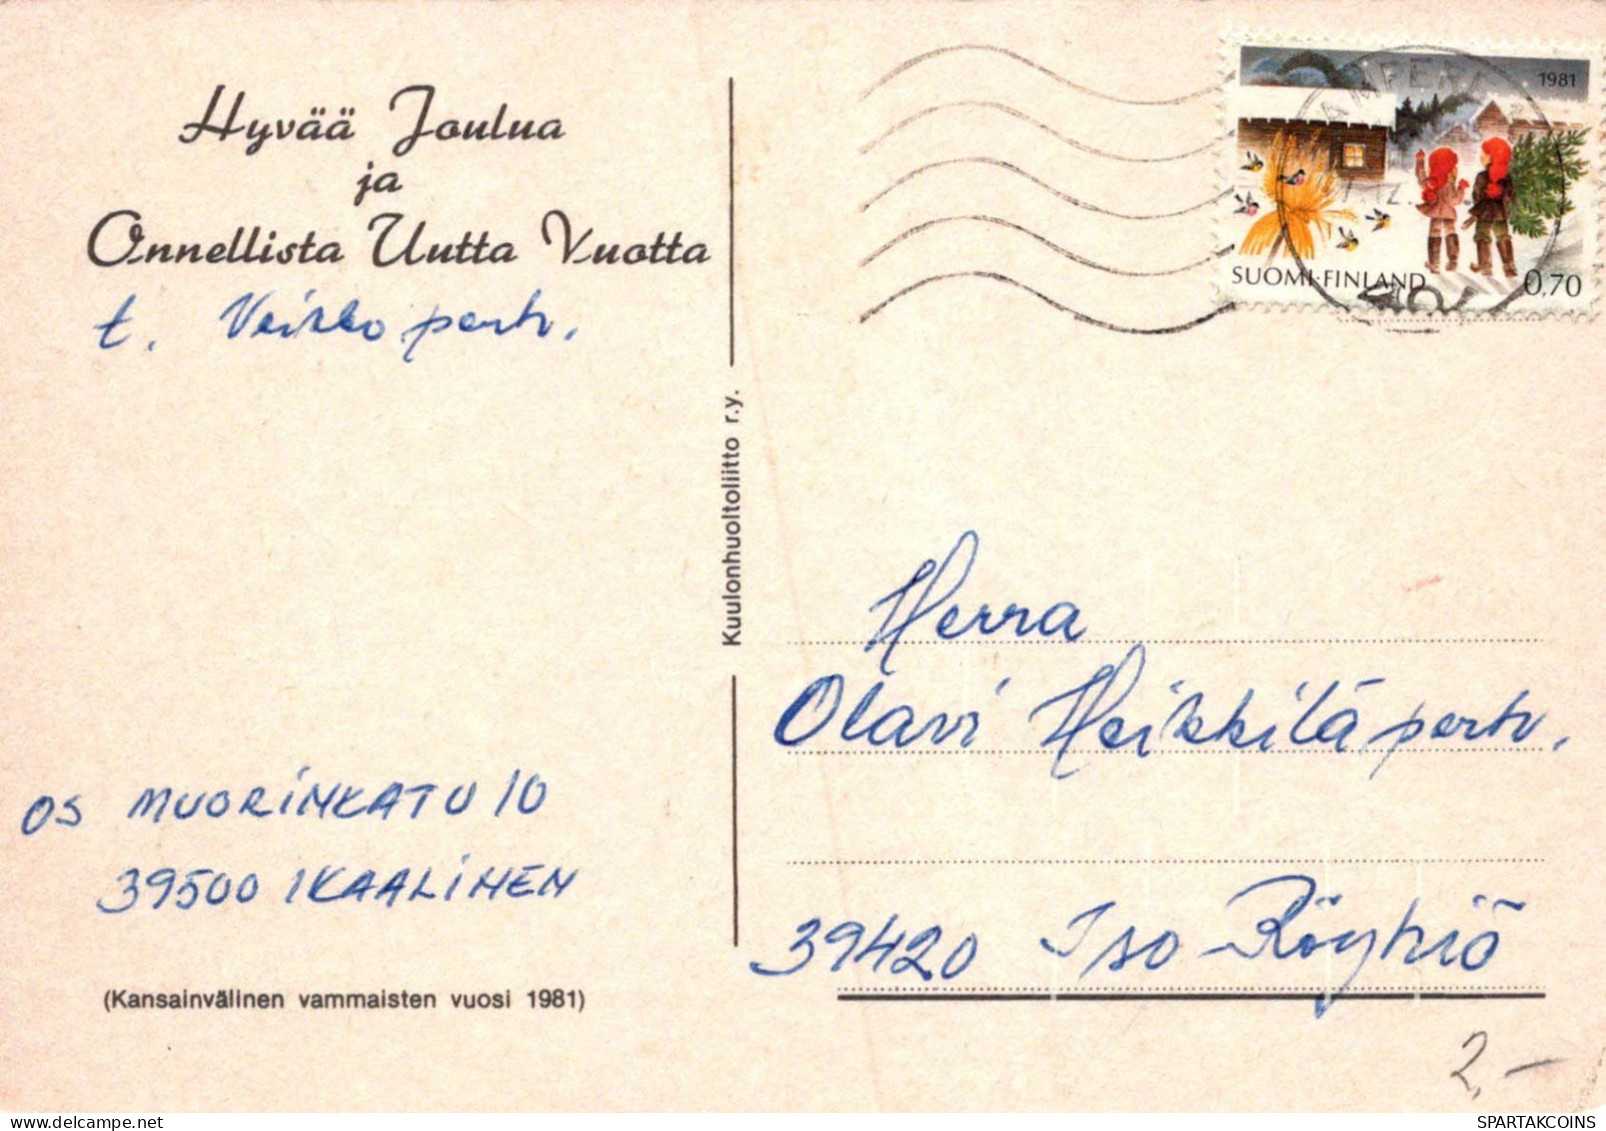 Hyvää Joulua
ja
Onnellista Uutta Vuotta
t. Veikko perh.
OS MUORINKATU 10
39500 IKAALINEN
(Kansainvälinen vammaisten vuosi 1981)
Kuulonhuoltoliitto r.y.
1981
SUOMI-FINLAND 0,70
Herra
Olavi Heikkilä perh.
39420 Iso-Röyhiö
2,-
SPARTAKCOINS